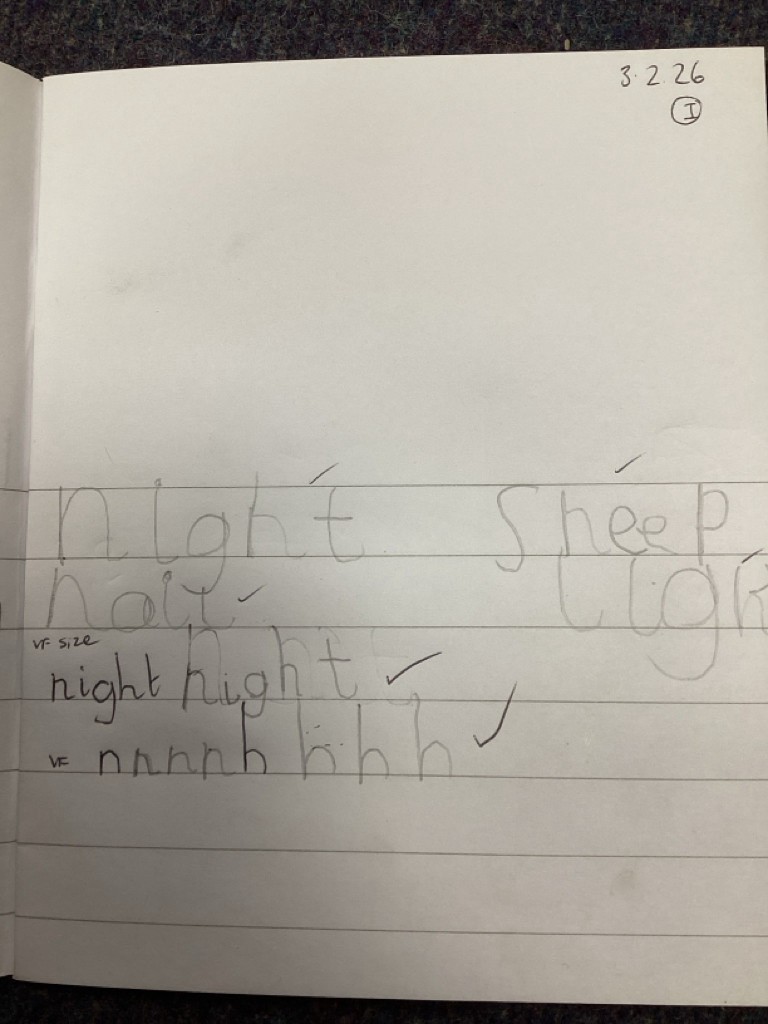 3.2.26
I
night sheep
nait ligh
VF size
night night
VF nnnnh hhh